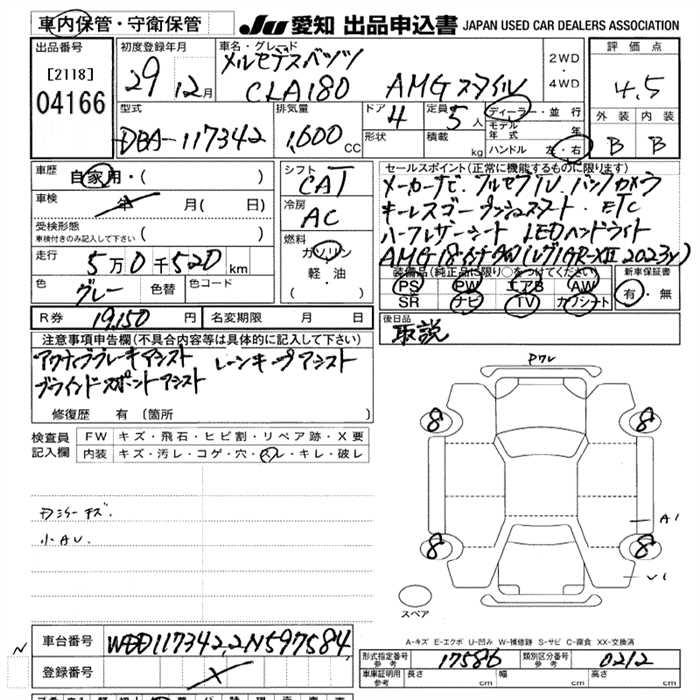 車内保管・守衛保管
JU 愛知 出品申込書 JAPAN USED CAR DEALERS ASSOCIATION
出品番号
[2118]
04166
初度登録年月
29年 12月
車名・グレード
メルセデスベンツ
CLA180 AMGスタイル
2WD
・
4WD
評価点
4.5
外装 内装
B B
型式
DBA-117342
排気量
1,600 CC
ドア
4
形状
定員
5人
積載 kg
ディーラー・並行
モデル年式 年
ハンドル 左・右
車歴
自家用・( )
車検
年 月( 日)
受検形態
車検付きのみ記入して下さい ( )
走行
5万0千520km
色
グレー
色替
色コード
R券 19,150円
名変期限 月 日
シフト
CAT
冷房
AC
燃料
ガソリン
軽・油
( )
セールスポイント(正常に機能するものに限ります)
メーカーナビ. フルセグTV. バックカメラ
キーレスゴー プッシュスタート. ETC
ハーフレザーシート LEDヘッドライト
装備品(純正品に限り○をつけてください)
PS PW エアB AW
SR ナビ TV カワシート
新車保証書
有・無
後日品
取説
注意事項申告欄(不具合内容等は具体的に記入して下さい)
アクティブブレーキアシスト レーンキープアシスト
ブラインドスポットアシスト
修復歴 有 (箇所 )
検査員記入欄
FW キズ・飛石・ヒビ割・リペア跡・X要
内装 キズ・汚レ・コゲ・穴・スレ・キレ・破レ
小AU.
8 8
8 8
A1
スペア
A-キズ E-エクボ U-凹み W-補修跡 S-サビ C-腐食 XX-交換済
N
車台番号 WDD1173422N597584
登録番号
型式指定番号 参考 17586
類別区分番号 参考 0212
車庫証明用 参考 長さ cm 幅 cm 高さ cm